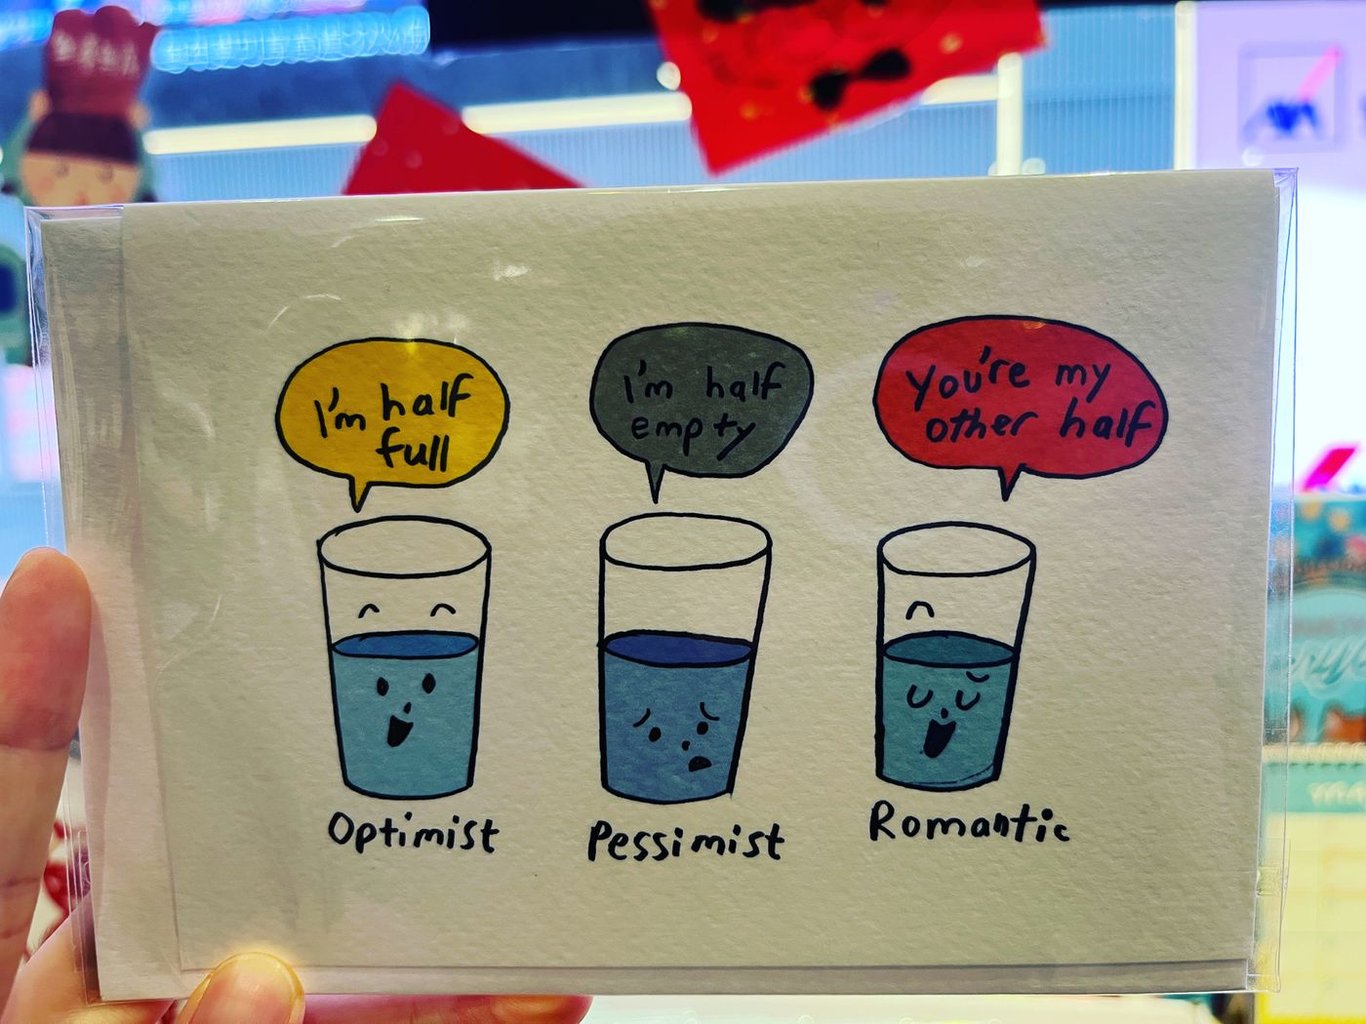 I'm half
full
I'm half
empty
You're my
other half
Optimist
Pessimist
Romantic
AXA